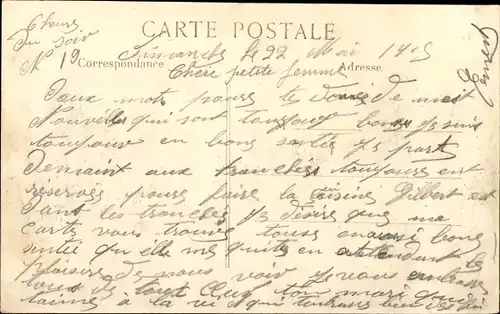 CARTE POSTALE
6 heures
du soir
N° 19
Correspondance
Adresse
Dimanche le 22 Mai 1915
Chère petite femme
Deux mots pour te donné de mait
Nouvelles qui sont toujour bonne je suis
toujours en bons santés je part
Demaint aux tranchés toujours ent
reservés pours fuire la cuisine Gilbert est
dant les tranches je desire que ma
carte vous trouve tous en aussi bone
sentié qu elle me quites en attendant le
plaisire de vous voir je vous embrasse
tous de tout Cœur ton mari qui
t'aimes a la vie qui toujours